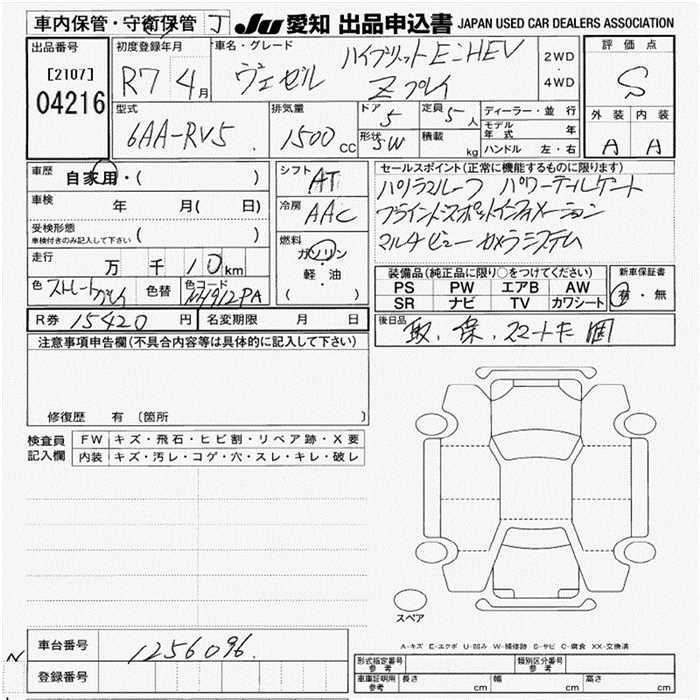 車内保管・守衛保管 J JU 愛知 出品申込書 JAPAN USED CAR DEALERS ASSOCIATION
出品番号 初度登録年月 車名・グレード 評価点
[2107] R7 4月 ヴェゼル ハイブリットE:HEV 2WD S
04216 Zプレイ 4WD
型式 排気量 ドア 5 定員 5人 ディーラー・並行 外装 内装
6AA-RV5 1500CC 形状 5W 積載 kg モデル年式 年 A A
ハンドル 左・右
車歴 自家用・( )
シフト AT
セールスポイント(正常に機能するものに限ります)
車検 年 月( 日)
冷房 AAC
パノラマルーフ パワーテールゲート
受検形態 ( )
車検付きのみ記入して下さい
ブラインドスポットインフォメーション
燃料 ガソリン・軽・油 ( )
マルチビューカメラシステム
走行 万 千 10km
装備品(純正品に限り○をつけてください) 新車保証書
PS PW エアB AW 有・無
SR ナビ TV カワシート
色 ストレートグレイ 色替 色コード NH912PA
R券 15420円 名変期限 月 日
後日品 取、保、スマートキー 1個
注意事項申告欄(不具合内容等は具体的に記入して下さい)
修復歴 有 〔箇所 〕
検査員記入欄 FW キズ・飛石・ヒビ割・リペア跡・X要
内装 キズ・汚レ・コゲ・穴・スレ・キレ・破レ
スペア
A-キズ E-エクボ U-凹み W-補修跡 S-サビ C-腐食 XX-交換済
車台番号 1256096
N 登録番号
型式指定番号 参考 類別区分番号 参考
車庫証明用 参考 長さ cm 幅 cm 高さ cm